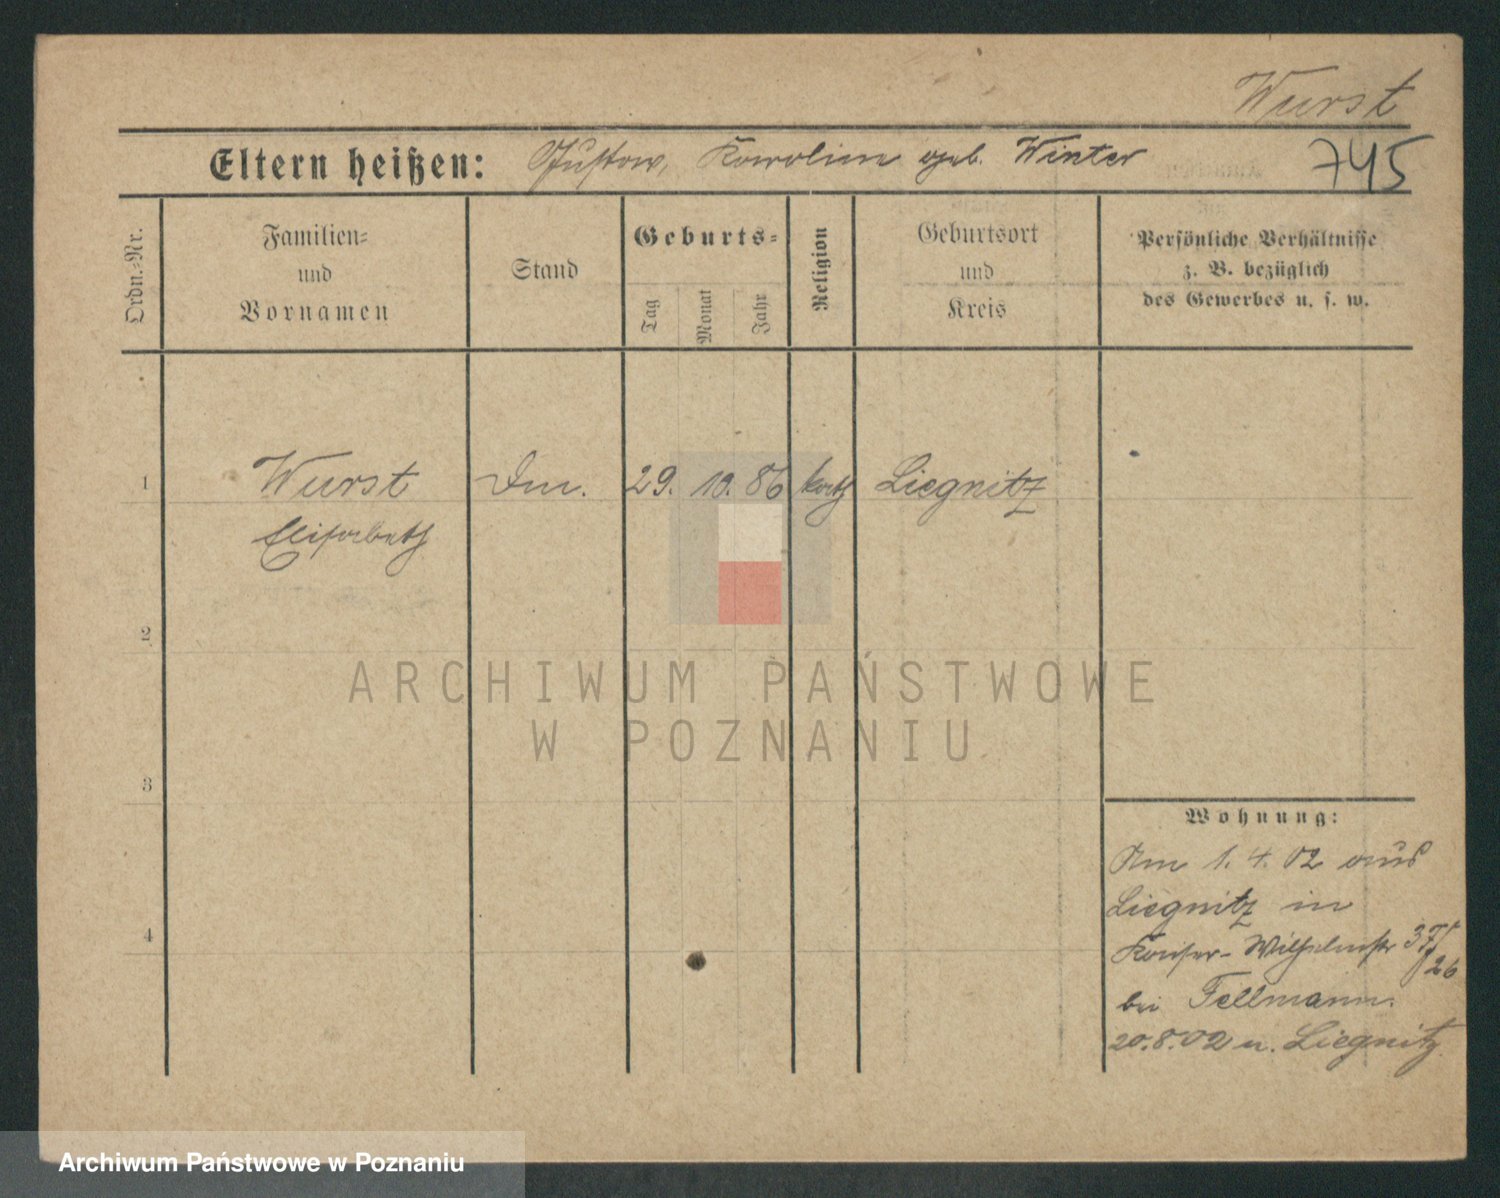 Wurst
Eltern heißen: Gustav, Karolina geb. Winter 745
Ordn.-Nr.
Familien- und Vornamen
Stand
Geburts-
Tag Monat Jahr
Religion
Geburtsort und Kreis
Persönliche Verhältnisse
z. B. bezüglich
des Gewerbes u. s. w.
1 Wurst 29. 10. 86 kath Liegnitz
Elisabeth
2
3
4
Wohnung:
Am 1. 4. 02 aus
Liegnitz in
Kaiser-Wilhelmstr 37/26
bei Fellmann.
20.8.02 n. Liegnitz
ARCHIWUM PAŃSTWOWE
W POZNANIU
Archiwum Państwowe w Poznaniu